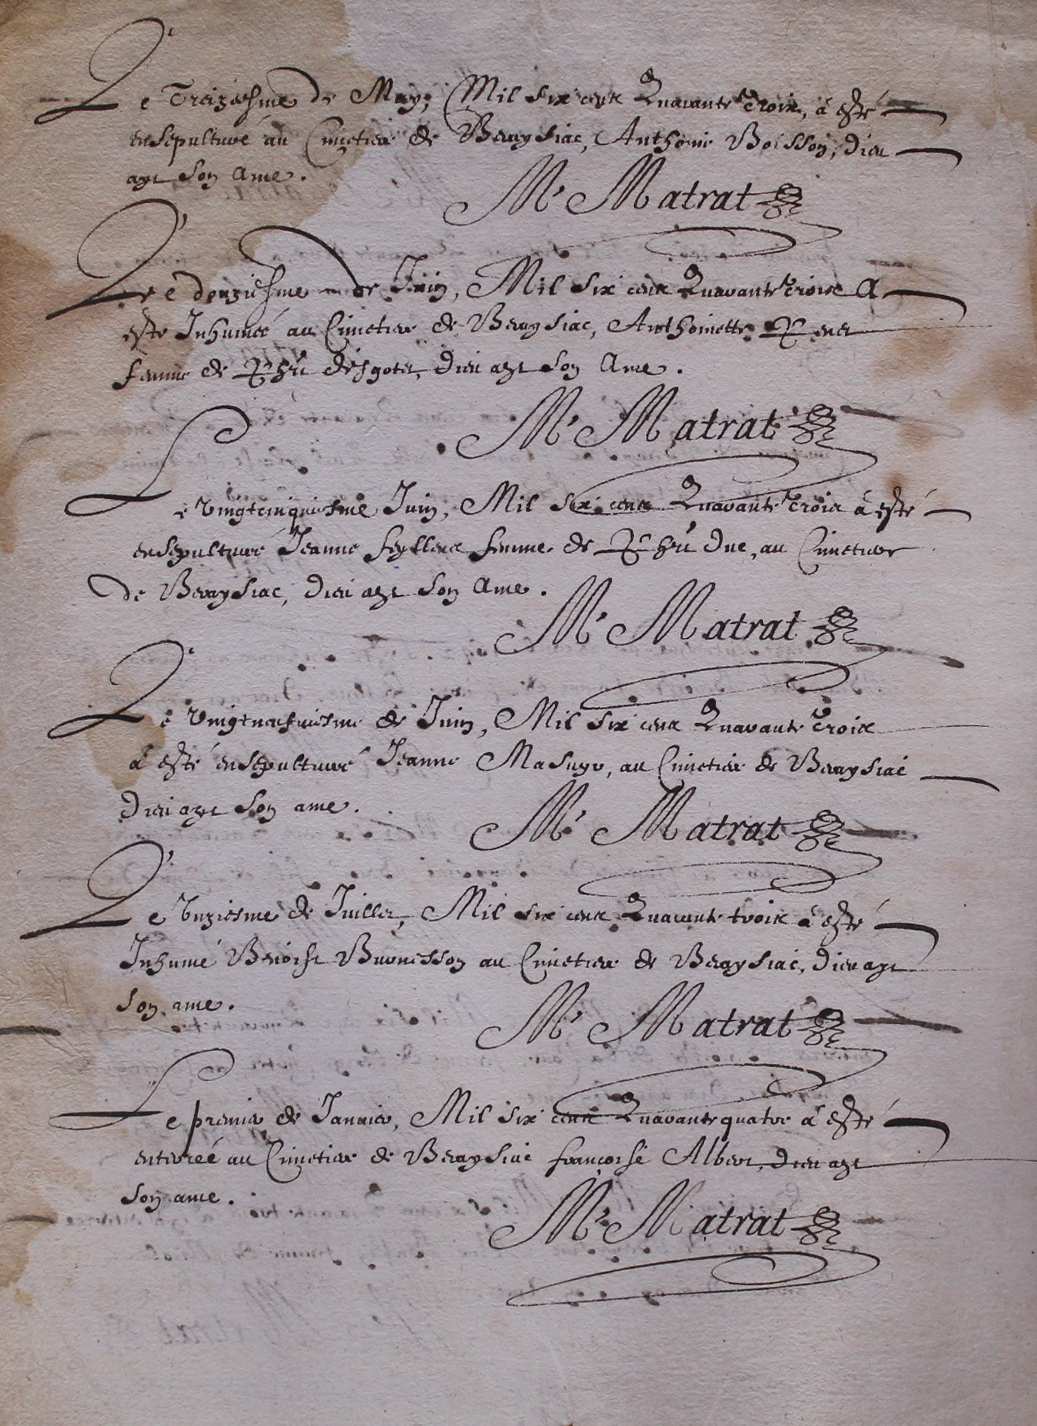 Le Treiziesme de May, Mil six cens Quarante Trois, a esté
ensepulturé au Cimetiere de Beraysiac, Anthoine Boisson, dieu
aye son ame.
Mr Matrat
Le douziesme de Juin, Mil six cens Quarante Trois A
esté Inhumée au Cimetiere de Beraysiac, Anthoinette
femme de dieu aye son Ame.
Mr Matrat
Le vingtcinquiesme Juin, Mil six cens Quarante Trois a esté
ensepulturé Jeanne femme de au Cimetiere
de Beraysiac, Dieu aye son Ame.
Mr Matrat
Le Vingtneufuiesme de Juin, Mil six cens Quarante Trois
a esté ensepulturé Jeanne au Cimetiere de Beraysiac
Dieu aye son ame.
Mr Matrat
Le Unziesme de Juillet, Mil six cens Quarante trois a esté
Inhumé Benoist au Cimetiere de Beraysiac, Dieu aye
son ame.
Mr Matrat
Le premier de Januier, Mil six cens Quarante quatre a esté
enterrée au Cimetiere de Beraysiac françoise Albert, Dieu aye
son ame.
Mr Matrat